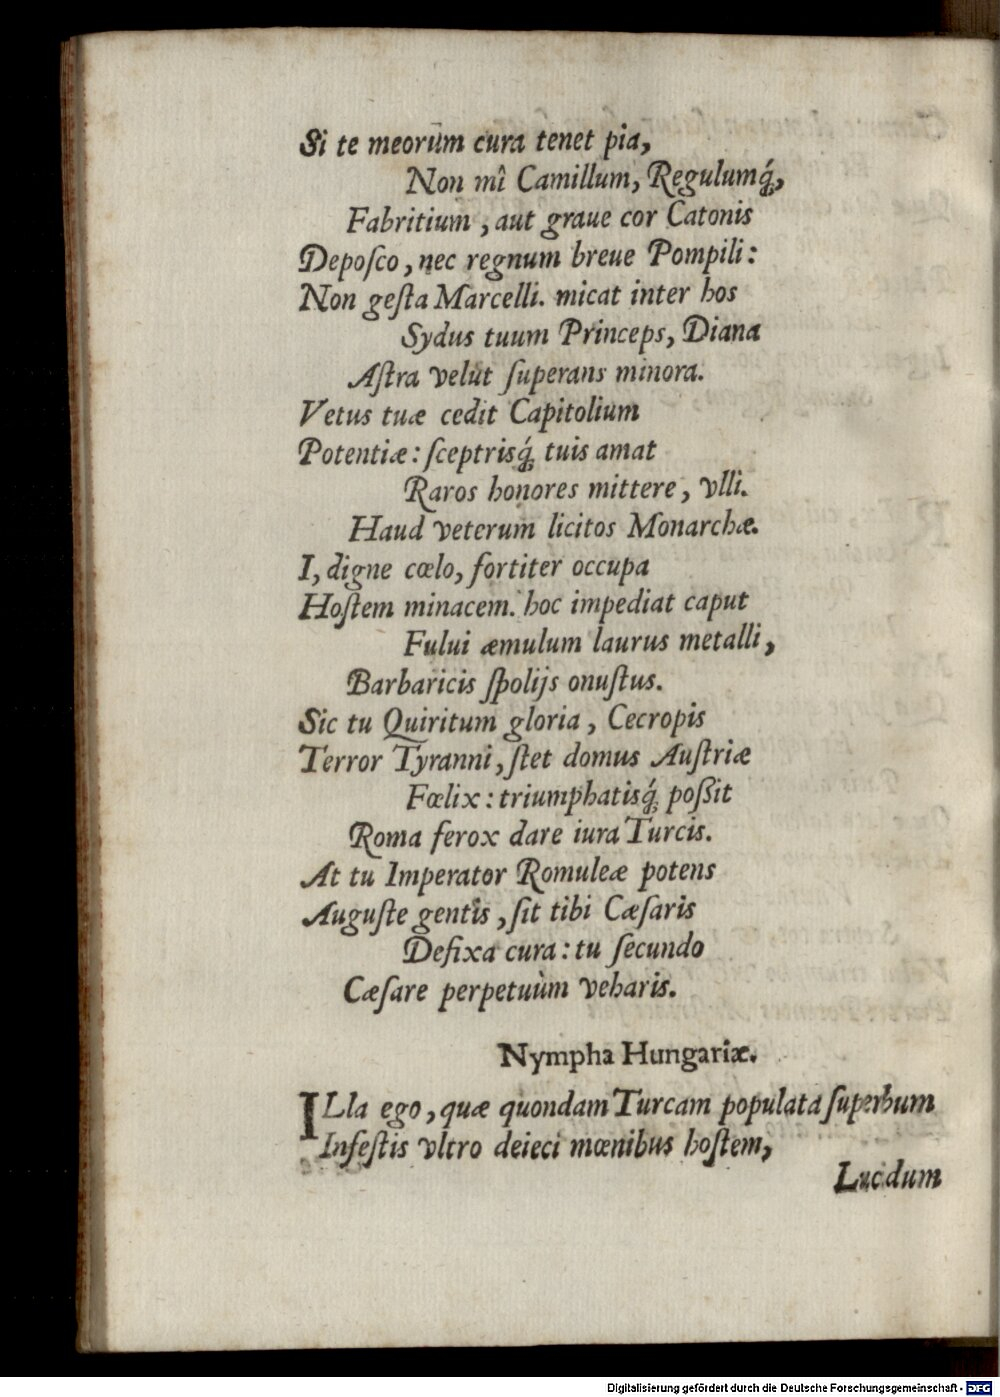 Si te meorum cura tenet pia,
Non mî Camillum, Regulumq́;,
Fabritium, aut graue cor Catonis
Depoſco, nec regnum breue Pompili:
Non geſta Marcelli. micat inter hos
Sydus tuum Princeps, Diana
Aſtra velut ſuperans minora.
Vetus tuæ cedit Capitolium
Potentiæ: ſceptrisq́; tuis amat
Raros honores mittere, vlli.
Haud veterum licitos Monarchæ.
I, digne cœlo, fortiter occupa
Hoſtem minacem. hoc impediat caput
Fului æmulum laurus metalli,
Barbaricis ſpolijs onuſtus.
Sic tu Quiritum gloria, Cecropis
Terror Tyranni, ſtet domus Auſtriæ
Fœlix: triumphatisq́; poßit
Roma ferox dare iura Turcis.
At tu Imperator Romuleæ potens
Auguſte gentis, ſit tibi Cæſaris
Defixa cura: tu ſecundo
Cæſare perpetuùm veharis.
Nympha Hungariæ.
ILla ego, quæ quondam Turcam populata ſuperbum
Infeſtis vltro deieci mœnibus hoſtem,
Lucdum
Digitalisierung gefördert durch die Deutsche Forschungsgemeinschaft - DFG